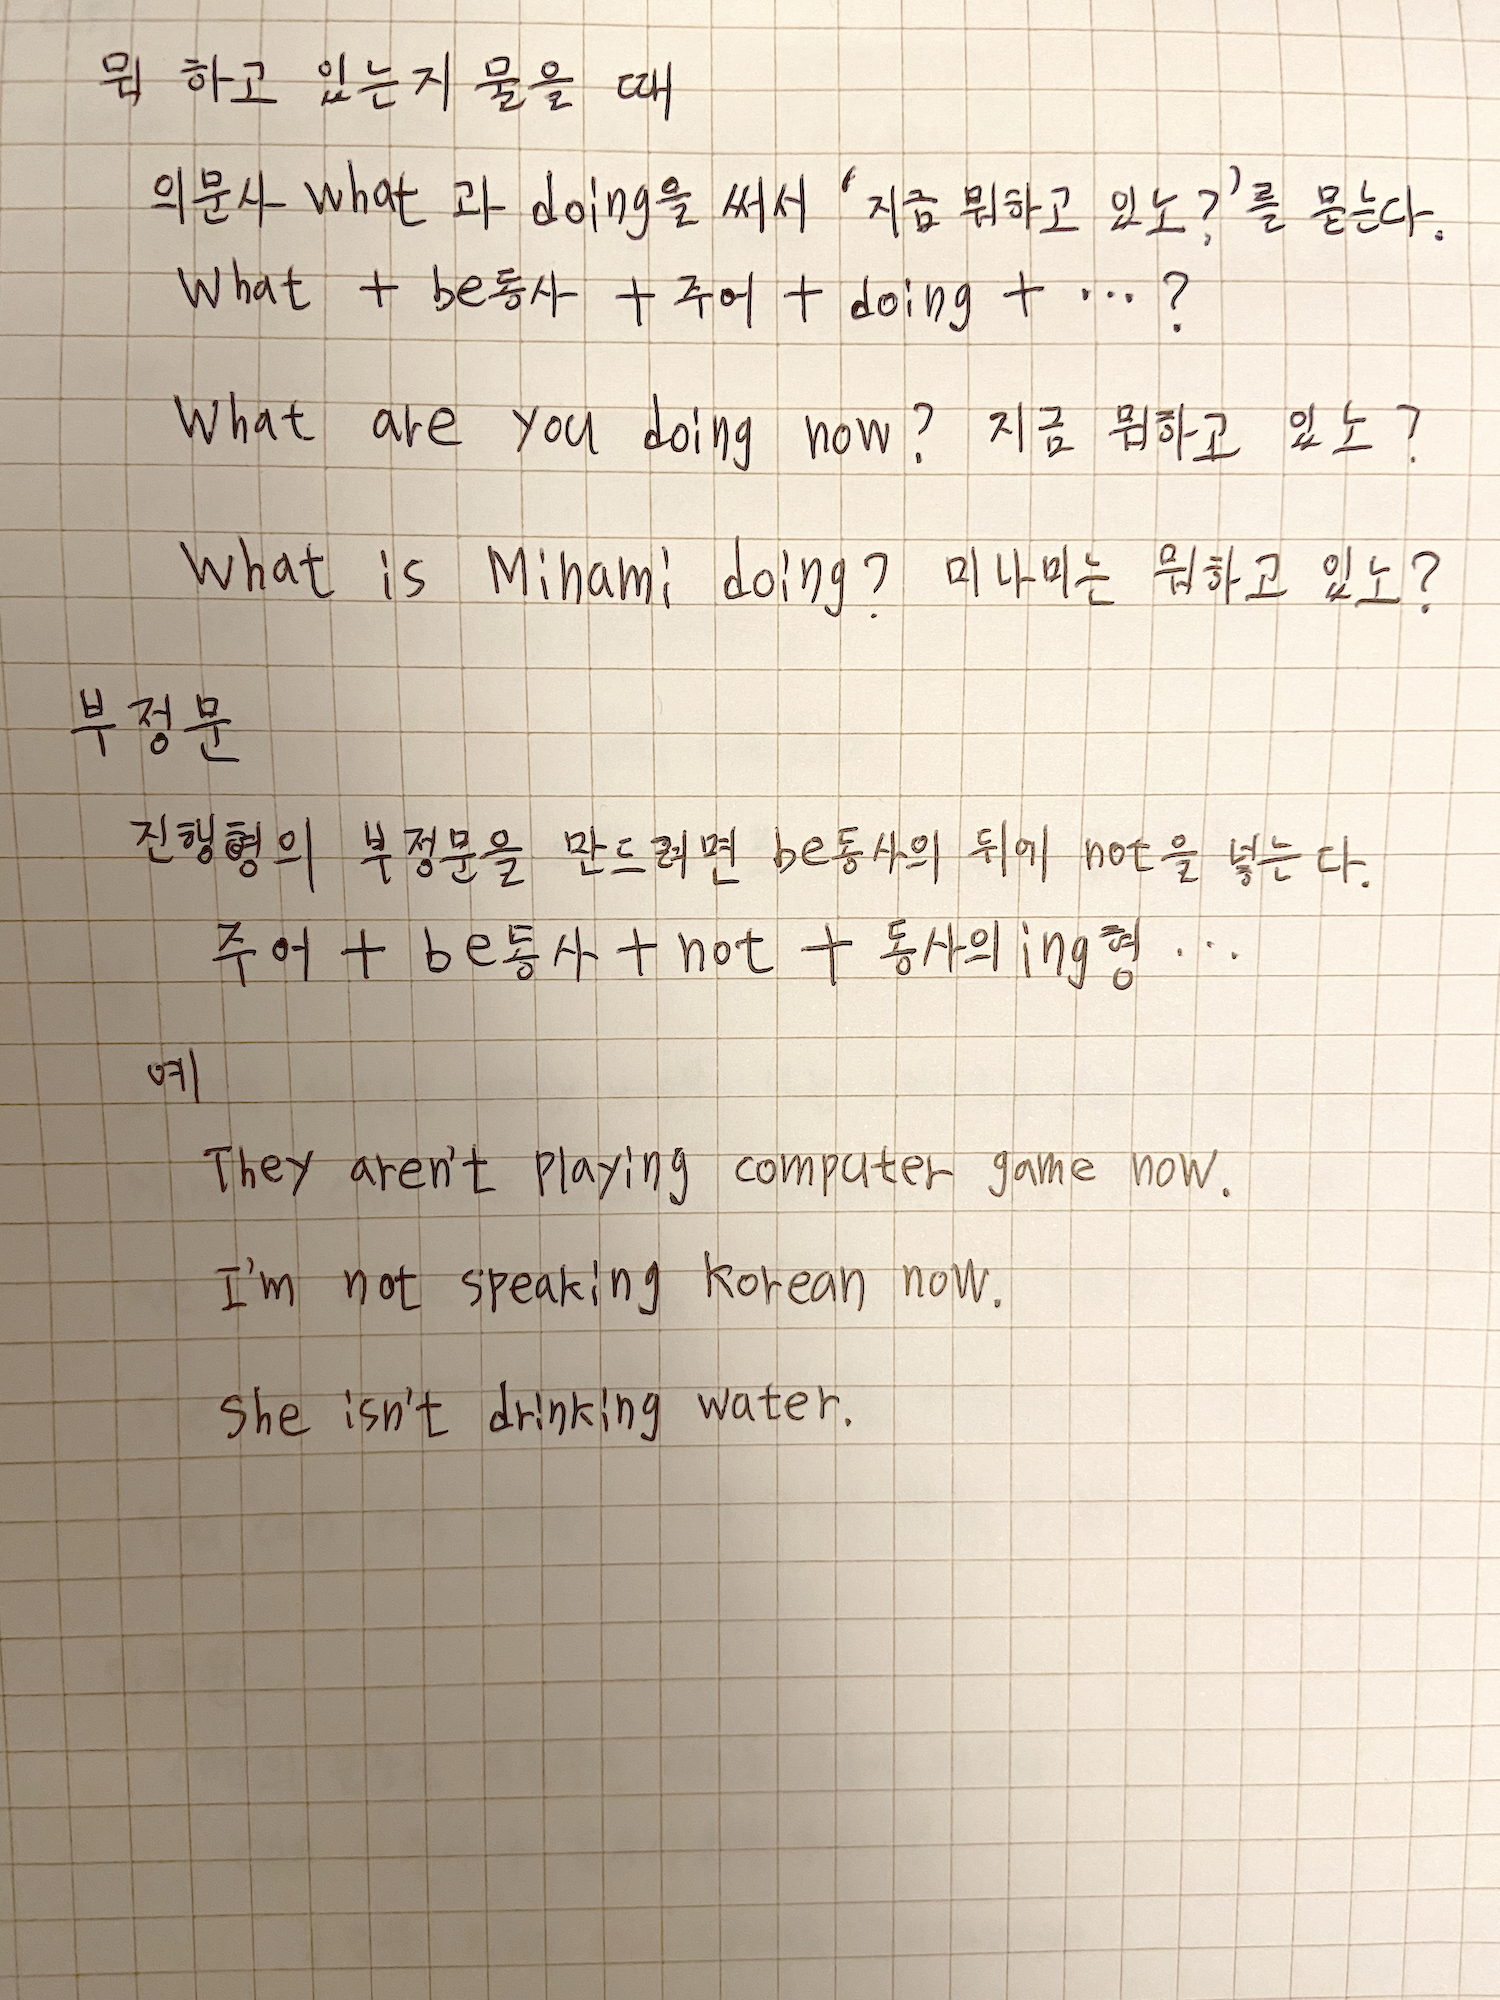 뭐 하고 있는지 물을 때
의문사 what 과 doing을 써서 ‘지금 뭐하고 있노?’를 묻는다.
What + be동사 + 주어 + doing + … ?
What are you doing now? 지금 뭐하고 있노?
What is Minami doing? 미나미는 뭐하고 있노?
부정문
진행형의 부정문을 만드려면 be동사의 뒤에 not을 넣는다.
주어 + be동사 + not + 동사의 ing형 …
예
They aren't playing computer game now.
I'm not speaking Korean now.
She isn't drinking water.